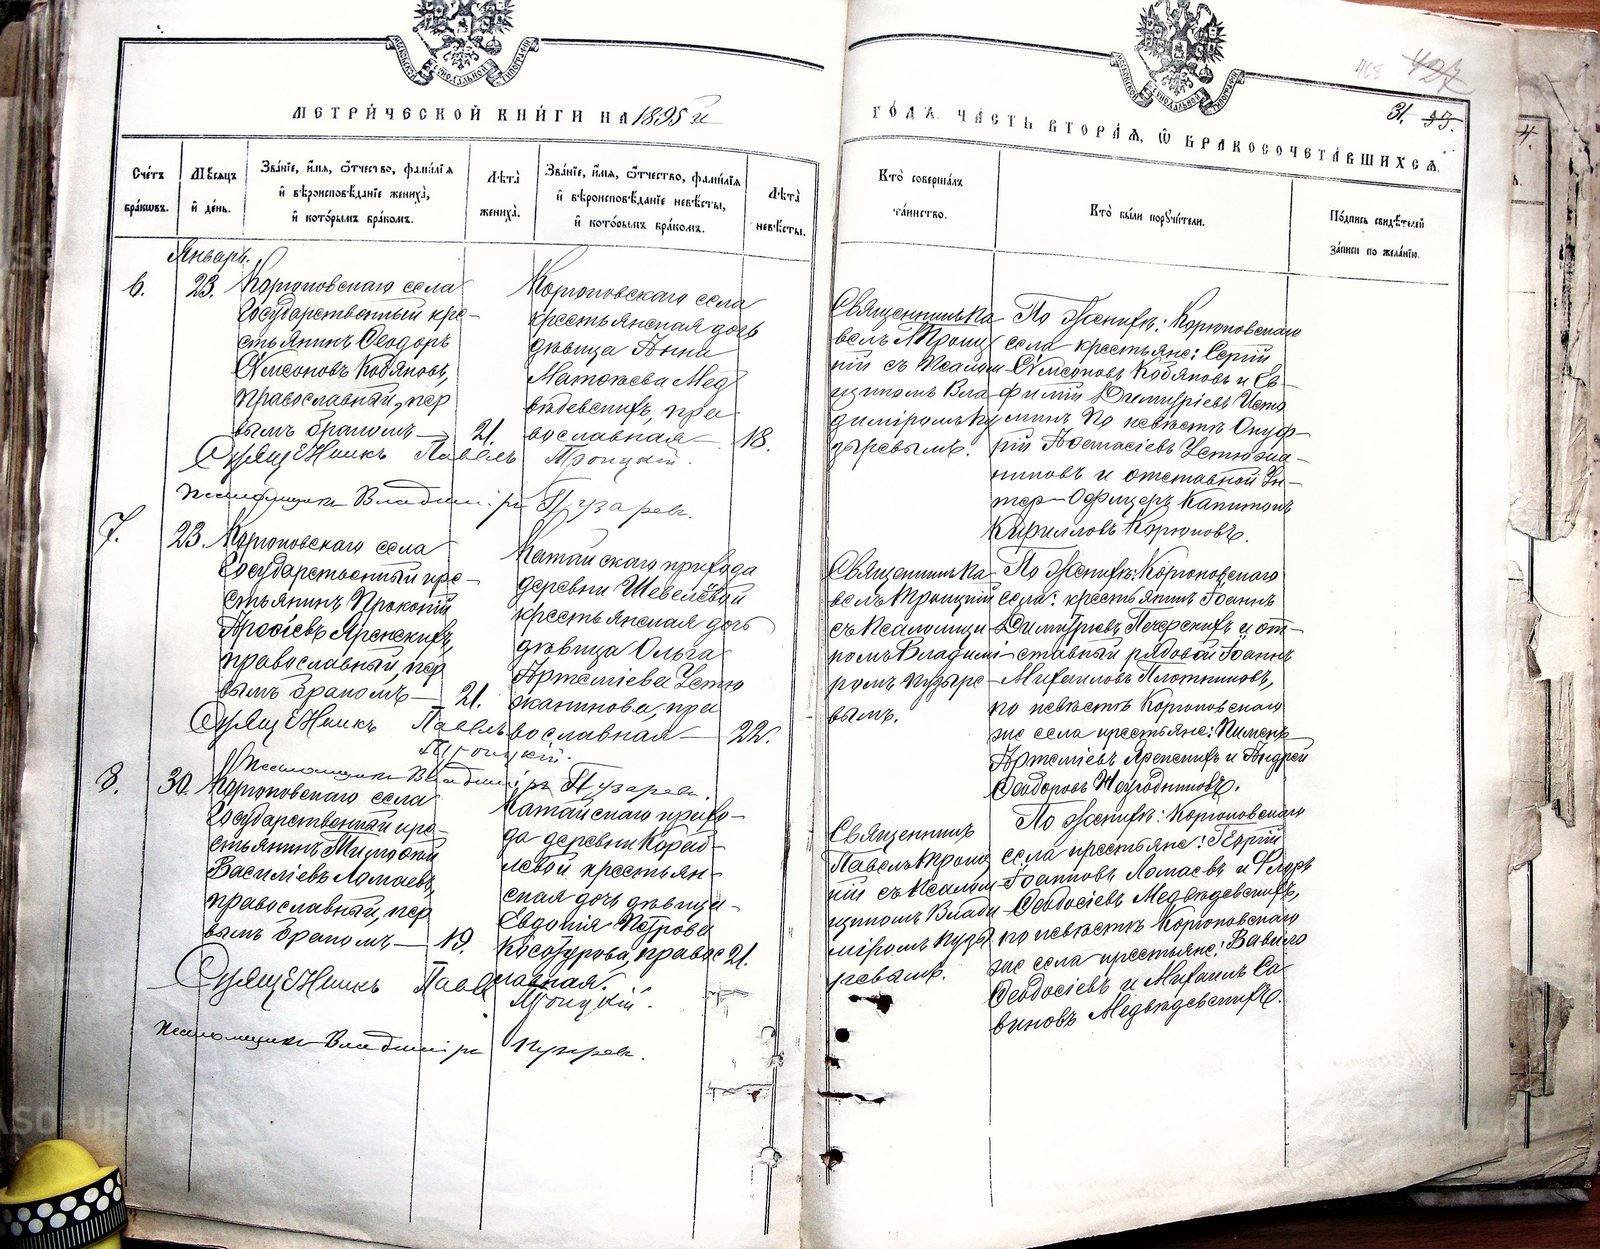 МЕТРИ́ЧЕСКОЙ КНИ́ГИ НА 1895й
ГО́ДЪ, ЧА́СТЬ ВТОРА́Я, Ѡ҆ БРАКОСОЧЕТА́ВШИХСЯ.
31.
Сче́тъ бра́кѡвъ.
Мѣ́сяцъ и҆ де́нь.
Зва́нїе, и҆́мя, ѻ҆́тчество, фамѝлїя и҆ вѣроисповѣ́данїе жениха̀, и҆ кото́рымъ бра́комъ.
Лѣ́та жениха̀.
Зва́нїе, и҆́мя, ѻ҆́тчество, фамѝлїя и҆ вѣроисповѣ́данїе невѣ́сты, и҆ кото́рымъ бра́комъ.
Лѣ́та невѣ́сты.
Кто̀ соверша́лъ та́инство.
Кто̀ бы́ли порꙋчи́тели.
По́дпись свидѣ́телей за́писи по жела́нїю.
Январь.
6.
23.
Корюковскаго села
Государственный кре-
стьянинъ Ѳеодоръ
Сѵмеоновъ Кобяковъ,
православный, пер
вымъ бракомъ—
21.
Корюковскаго села
крестьянская дочь
дѣвица Анна
Матѳеева Мед
вѣдевскихъ, пра
вославная—
18.
Священникъ Па
велъ Троиц
кій съ Псалом
щикомъ Вла
диміромъ Пу
зыревымъ.
По женихѣ: Корюковскаго
села крестьяне: Сергій
Сѵмеоновъ Кобяковъ и Ев-
фимій Димитріевъ Исто
минъ по невѣстѣ Онуф-
рій Аѳанасіевъ Устюжа-
ниновъ и отставной Ун-
теръ-Офицеръ Капитонъ
Кирилловъ Корюковъ.
Священникъ Павелъ Троицкій.
Псаломщикъ Владиміръ Пузыревъ.
7.
23.
Корюковскаго села
Государственный кре-
стьянинъ Прокопій
Яренскихъ,
православный, пер
вымъ бракомъ—
21.
Катайскаго прихода
деревни Шевелёвой
крестьянская дочь
дѣвица Ольга
Артеміева Устю
жанинова, пра
вославная—
22.
Священникъ Па
велъ Троицкій
съ Псаломщи
комъ Владимі
ромъ Пузыре
вымъ.
По женихѣ: Корюковскаго
села: крестьянинъ Іоаннъ
Димитріевъ Печерскихъ и от-
ставный рядовой Іоаннъ
Михаиловъ Плотниковъ,
по невѣстѣ Корюковскаго
же села крестьяне: Пименъ
Артеміевъ Яренскихъ и Андрей
Ѳеодоровъ Неугодниковъ.
Священникъ Павелъ
Троицкій.
Псаломщикъ Владиміръ Пузыревъ.
8.
30.
Корюковскаго села
Государственный кре-
стьянинъ Тимоѳей
Василіевъ Ломаевъ,
православный, пер
вымъ бракомъ—
19.
Катайскаго прихо-
да деревни Кораб-
левой крестьян-
ская дочь дѣвица
Евдокія Петрова
Косотурова, правос
лавная.
21.
Священникъ
Павелъ Троиц
кій съ Псалом
щикомъ Влади
міромъ Пузы
ревымъ.
По женихѣ: Корюковскаго
села крестьяне: Георгій
Іоанновъ Ломаевъ и Флоръ
Ѳеодосіевъ Медвѣдевскихъ,
по невѣстѣ Корюковскаго
же села крестьяне: Вавило
Ѳеодосіевъ и Михаилъ Са
виновъ Медвѣдевскихъ.
Священникъ Павелъ
Троицкій.
Псаломщикъ Владиміръ Пузыревъ.